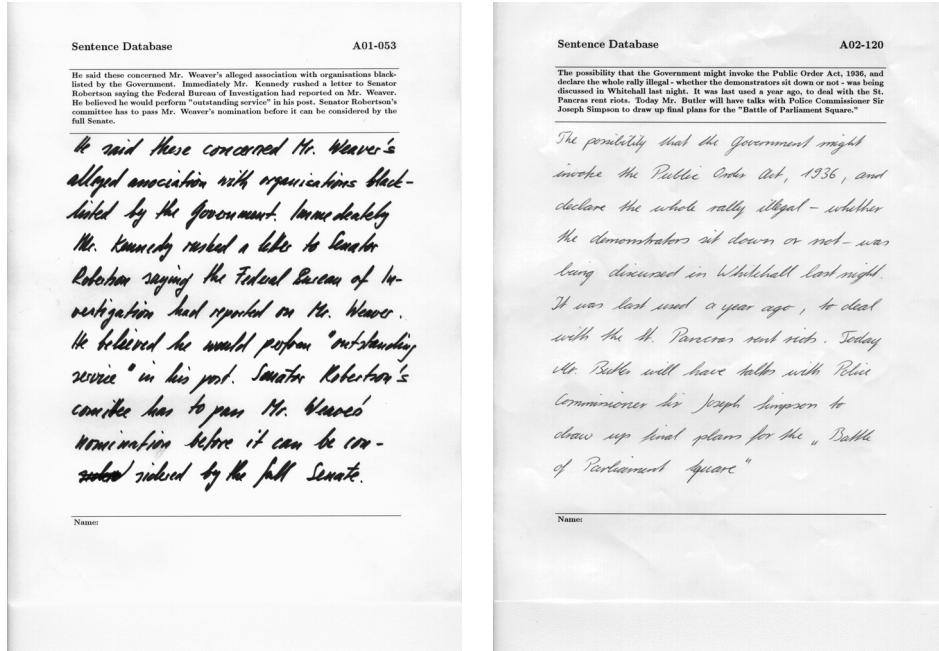 Sentence Database A01-053
He said these concerned Mr. Weaver's alleged association with organisations black-
listed by the Government. Immediately Mr. Kennedy rushed a letter to Senator
Robertson saying the Federal Bureau of Investigation had reported on Mr. Weaver.
He believed he would perform "outstanding service" in his post. Senator Robertson's
committee has to pass Mr. Weaver's nomination before it can be considered by the
full Senate.
He said these concerned Mr. Weaver's
alleged association with organisations black-
listed by the Government. Immedeately
Mr. Kennedy rushed a letter to Senator
Robertson saying the Federal Bureau of In-
vestigation had reported on Mr. Weaver.
He believed he would perfom "outstanding
service" in his post. Senator Robertson's
comitee has to pass Mr. Weaver's
nomination before it can be con-
sidered by the full Senate.
Name:
Sentence Database A02-120
The possibility that the Government might invoke the Public Order Act, 1936, and
declare the whole rally illegal - whether the demonstrators sit down or not - was being
discussed in Whitehall last night. It was last used a year ago, to deal with the St.
Pancras rent riots. Today Mr. Butler will have talks with Police Commissioner Sir
Joseph Simpson to draw up final plans for the "Battle of Parliament Square."
The possibility that the Government might
invoke the Public Order Act, 1936, and
declare the whole rally illegal - whether
the demonstrators sit down or not - was
being discussed in Whitehall last night.
It was last used a year ago, to deal
with the St. Pancras rent riots. Today
Mr. Butler will have talks with Police
Commissioner Sir Joseph Simpson to
draw up final plans for the „Battle
of Parliament Square"
Name: